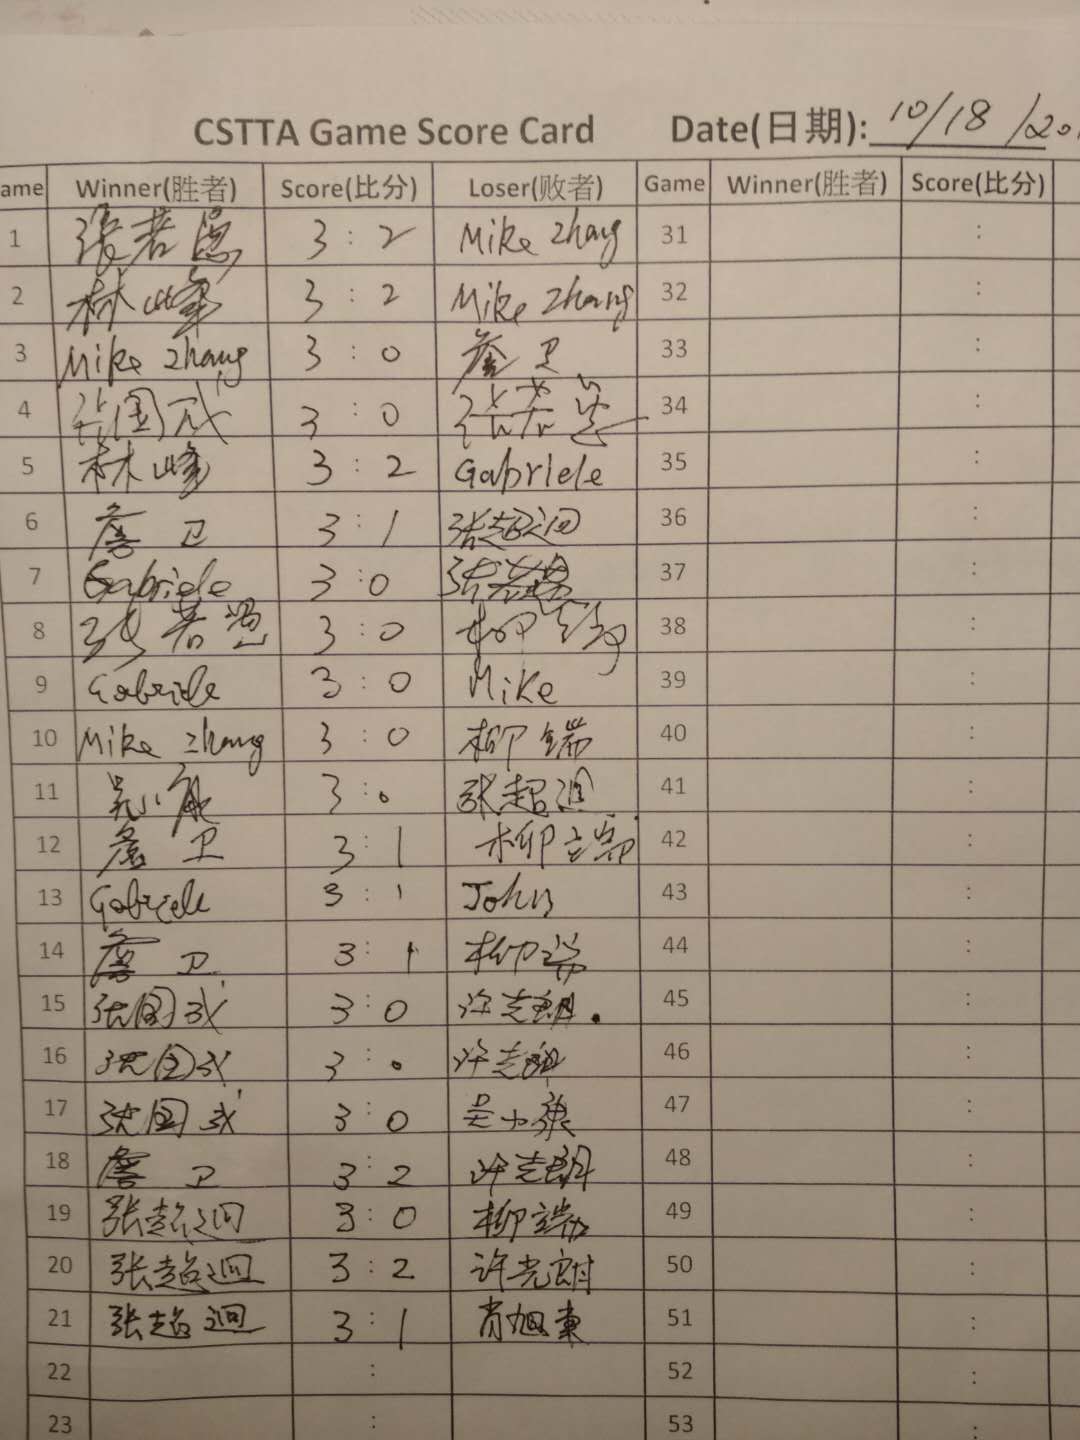 CSTTA Game Score Card Date(日期): 10/18/20
ame Winner(胜者) Score(比分) Loser(败者) Game Winner(胜者) Score(比分)
1 張若愚 3 : 2 Mike Zhang 31 :
2 林峰 3 : 2 Mike Zhang 32 :
3 Mike Zhang 3 : 0 詹卫 33 :
4 张国成 3 : 0 张若愚 34 :
5 林峰 3 : 2 Gabriele 35 :
6 詹卫 3 : 1 张超迴 36 :
7 Gabriele 3 : 0 张若愚 37 :
8 张若愚 3 : 0 柳端 38 :
9 Gabriele 3 : 0 Mike 39 :
10 Mike Zhang 3 : 0 柳端 40 :
11 吴小 3 : 0 张超迴 41 :
12 詹卫 3 : 1 柳端 42 :
13 Gabriele 3 : 1 John 43 :
14 詹卫 3 : 1 柳端 44 :
15 张国成 3 : 0 许志朗. 45 :
16 张国成 3 : 0 46 :
17 张国成 3 : 0 吴小 47 :
18 詹卫 3 : 2 48 :
19 张超迴 3 : 0 柳端 49 :
20 张超迴 3 : 2 50 :
21 张超迴 3 : 1 肖旭东 51 :
22 : 52 :
23 : 53 :